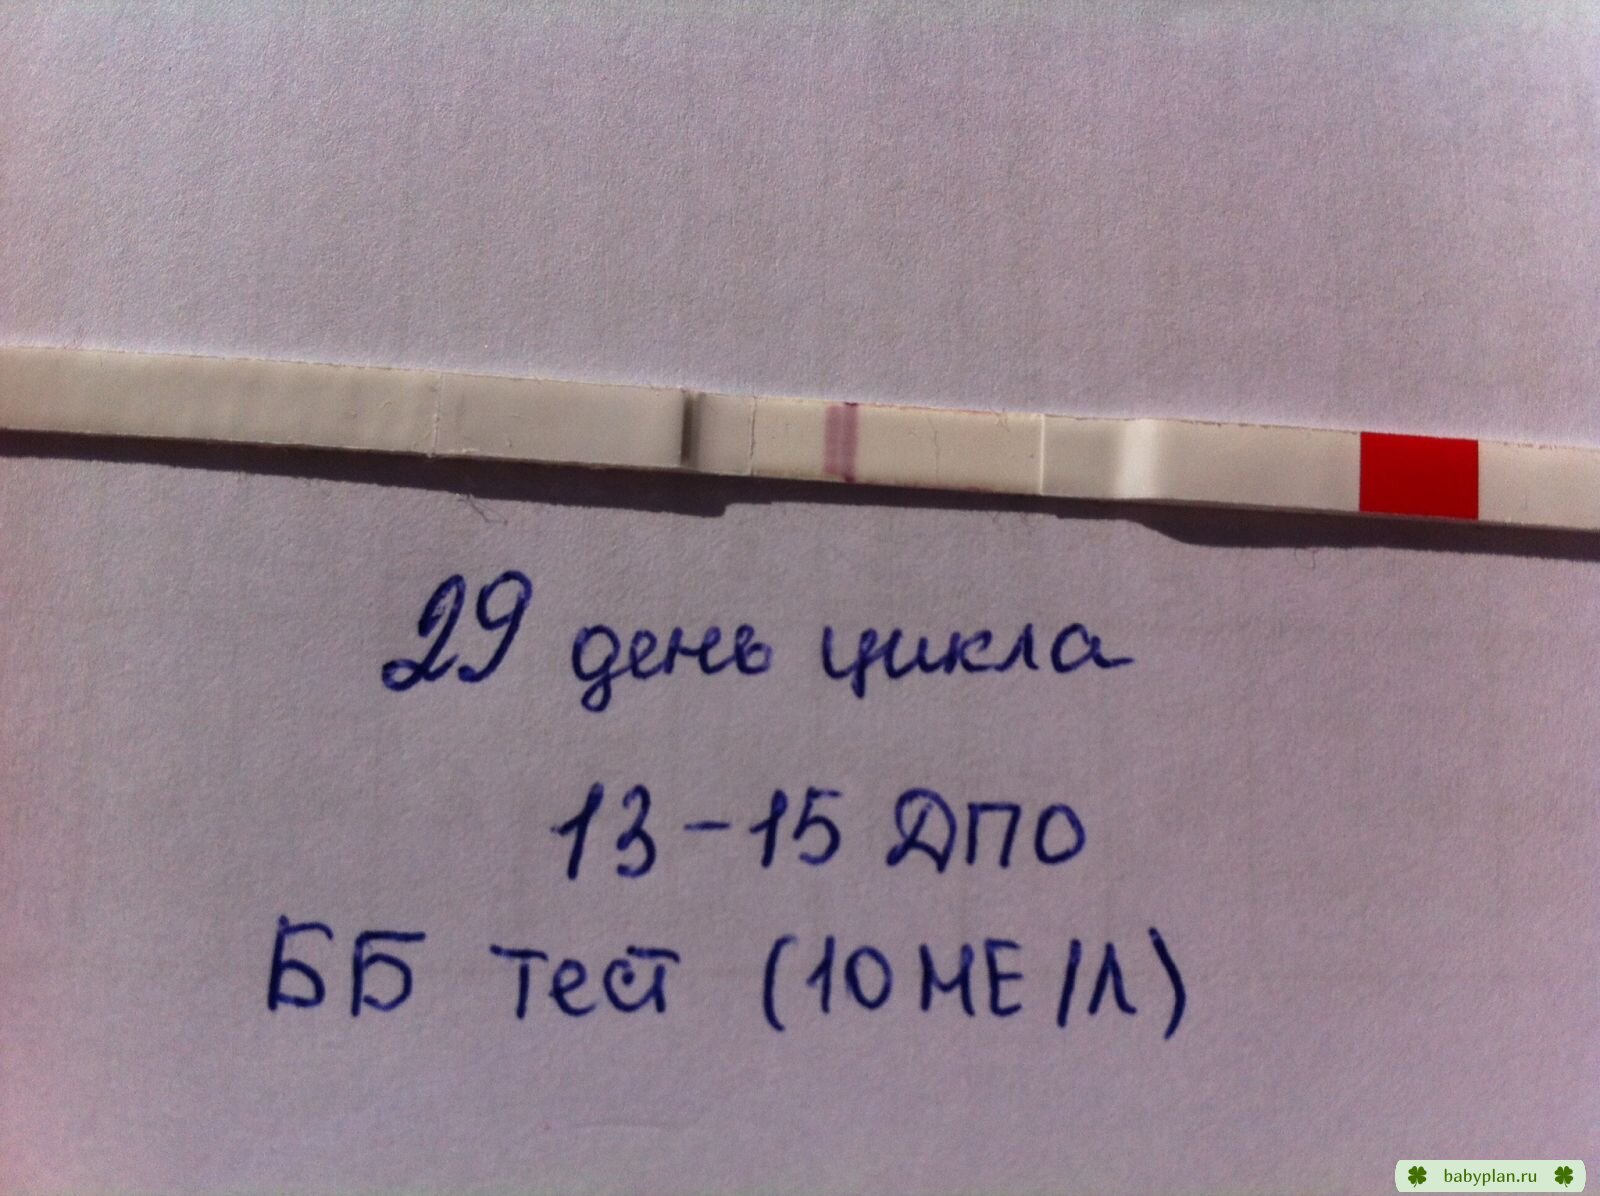 29 день цикла
13-15 ДПО
ББ тест (10 МЕ/Л)
babyplan.ru